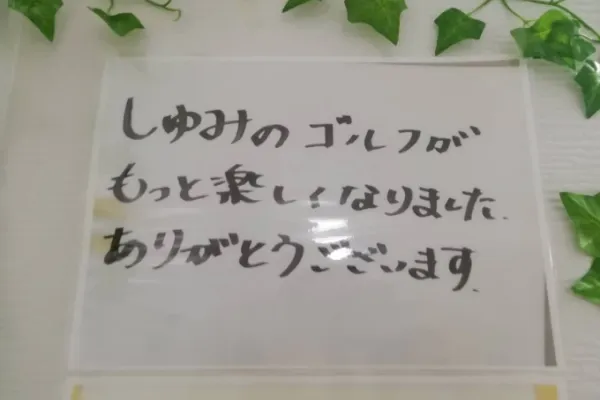 しゅみのゴルフが
もっと楽しくなりました.
ありがとうございます.